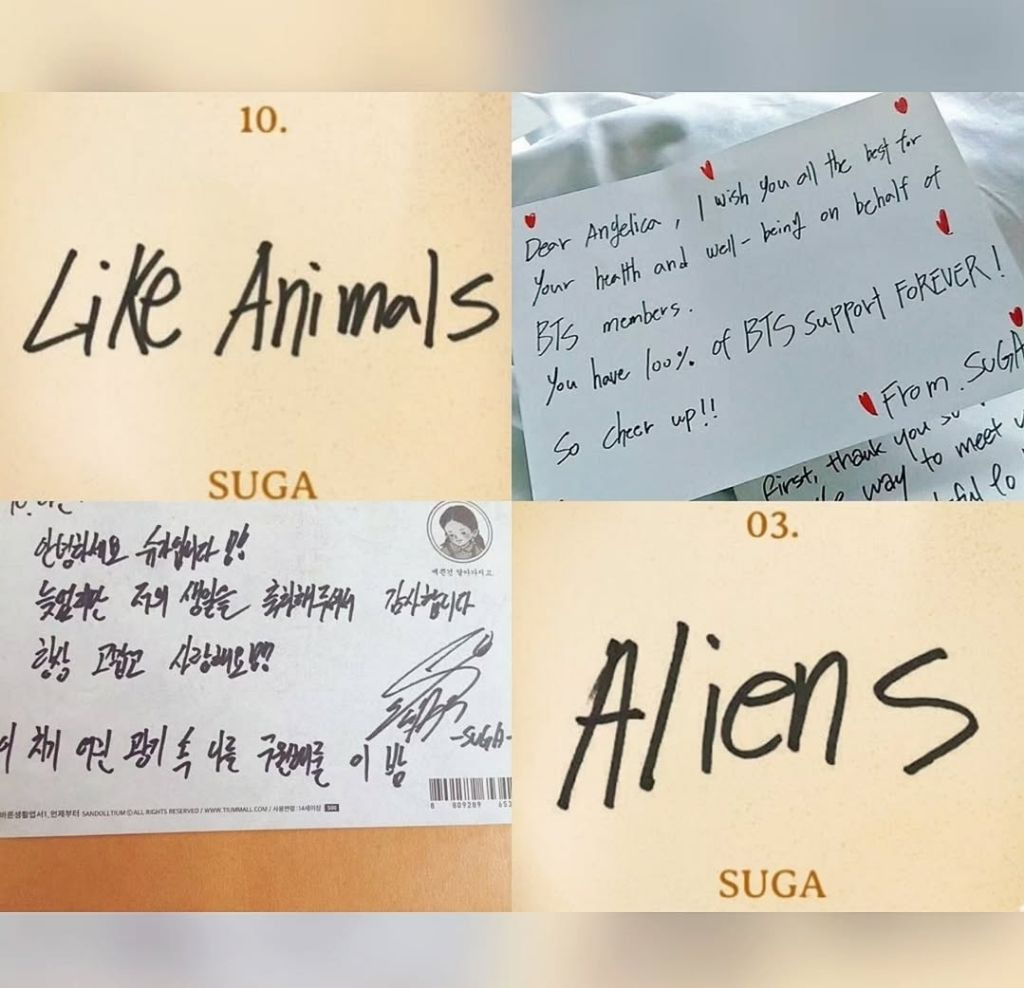 10.
Like Animals
SUGA
Dear Angelica, I wish you all the best for
your health and well-being on behalf of
BTS members.
You have 100% of BTS support FOREVER!
So cheer up!!
From. SUGA
First, thank you
way to meet
안녕하세요 슈가입니다!!
늦었지만 저의 생일을 축하해주셔서 감사합니다
항상 고맙고 사랑해요!!!
-SUGA-
치기 어린 광기 속 나를 구원해줄 이 밤
예쁜건 알아가지고
8 809289 653
바른생활엽서1_언제부터 SANDOLLTIUM ⓒALL RIGHTS RESERVED / WWW.TIUMMALL.COM / 사용연령 : 14세이상
03.
Aliens
SUGA